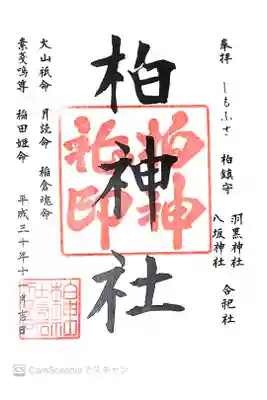 奉拝 しもふさ 柏鎮守
羽黒神社
八坂神社
合祀社
柏神社
大山祇命 月読命 稲倉魂命
素戔嗚尊 稲田姫命 平成三十年十一月吉日
柏神
社印
CamScannerでスキャン